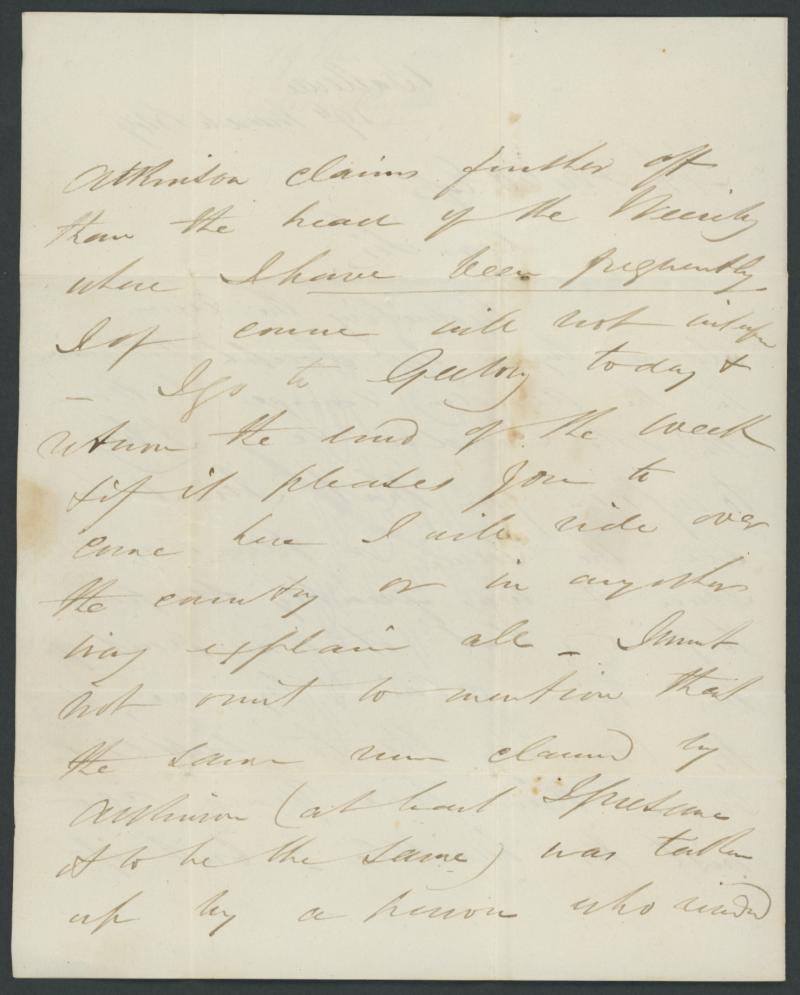 Atkinson claims further off
than the head of the
where I have been frequently
I of course will not
I go to Geelong today &
return the end of the week
& if it pleases you to
come here I will ride over
the country or in any other
way explain all _ I must
not omit to mention that
the same run claimed by
Atkinson (at least I presume
it to be the same) was taken
up by a person who